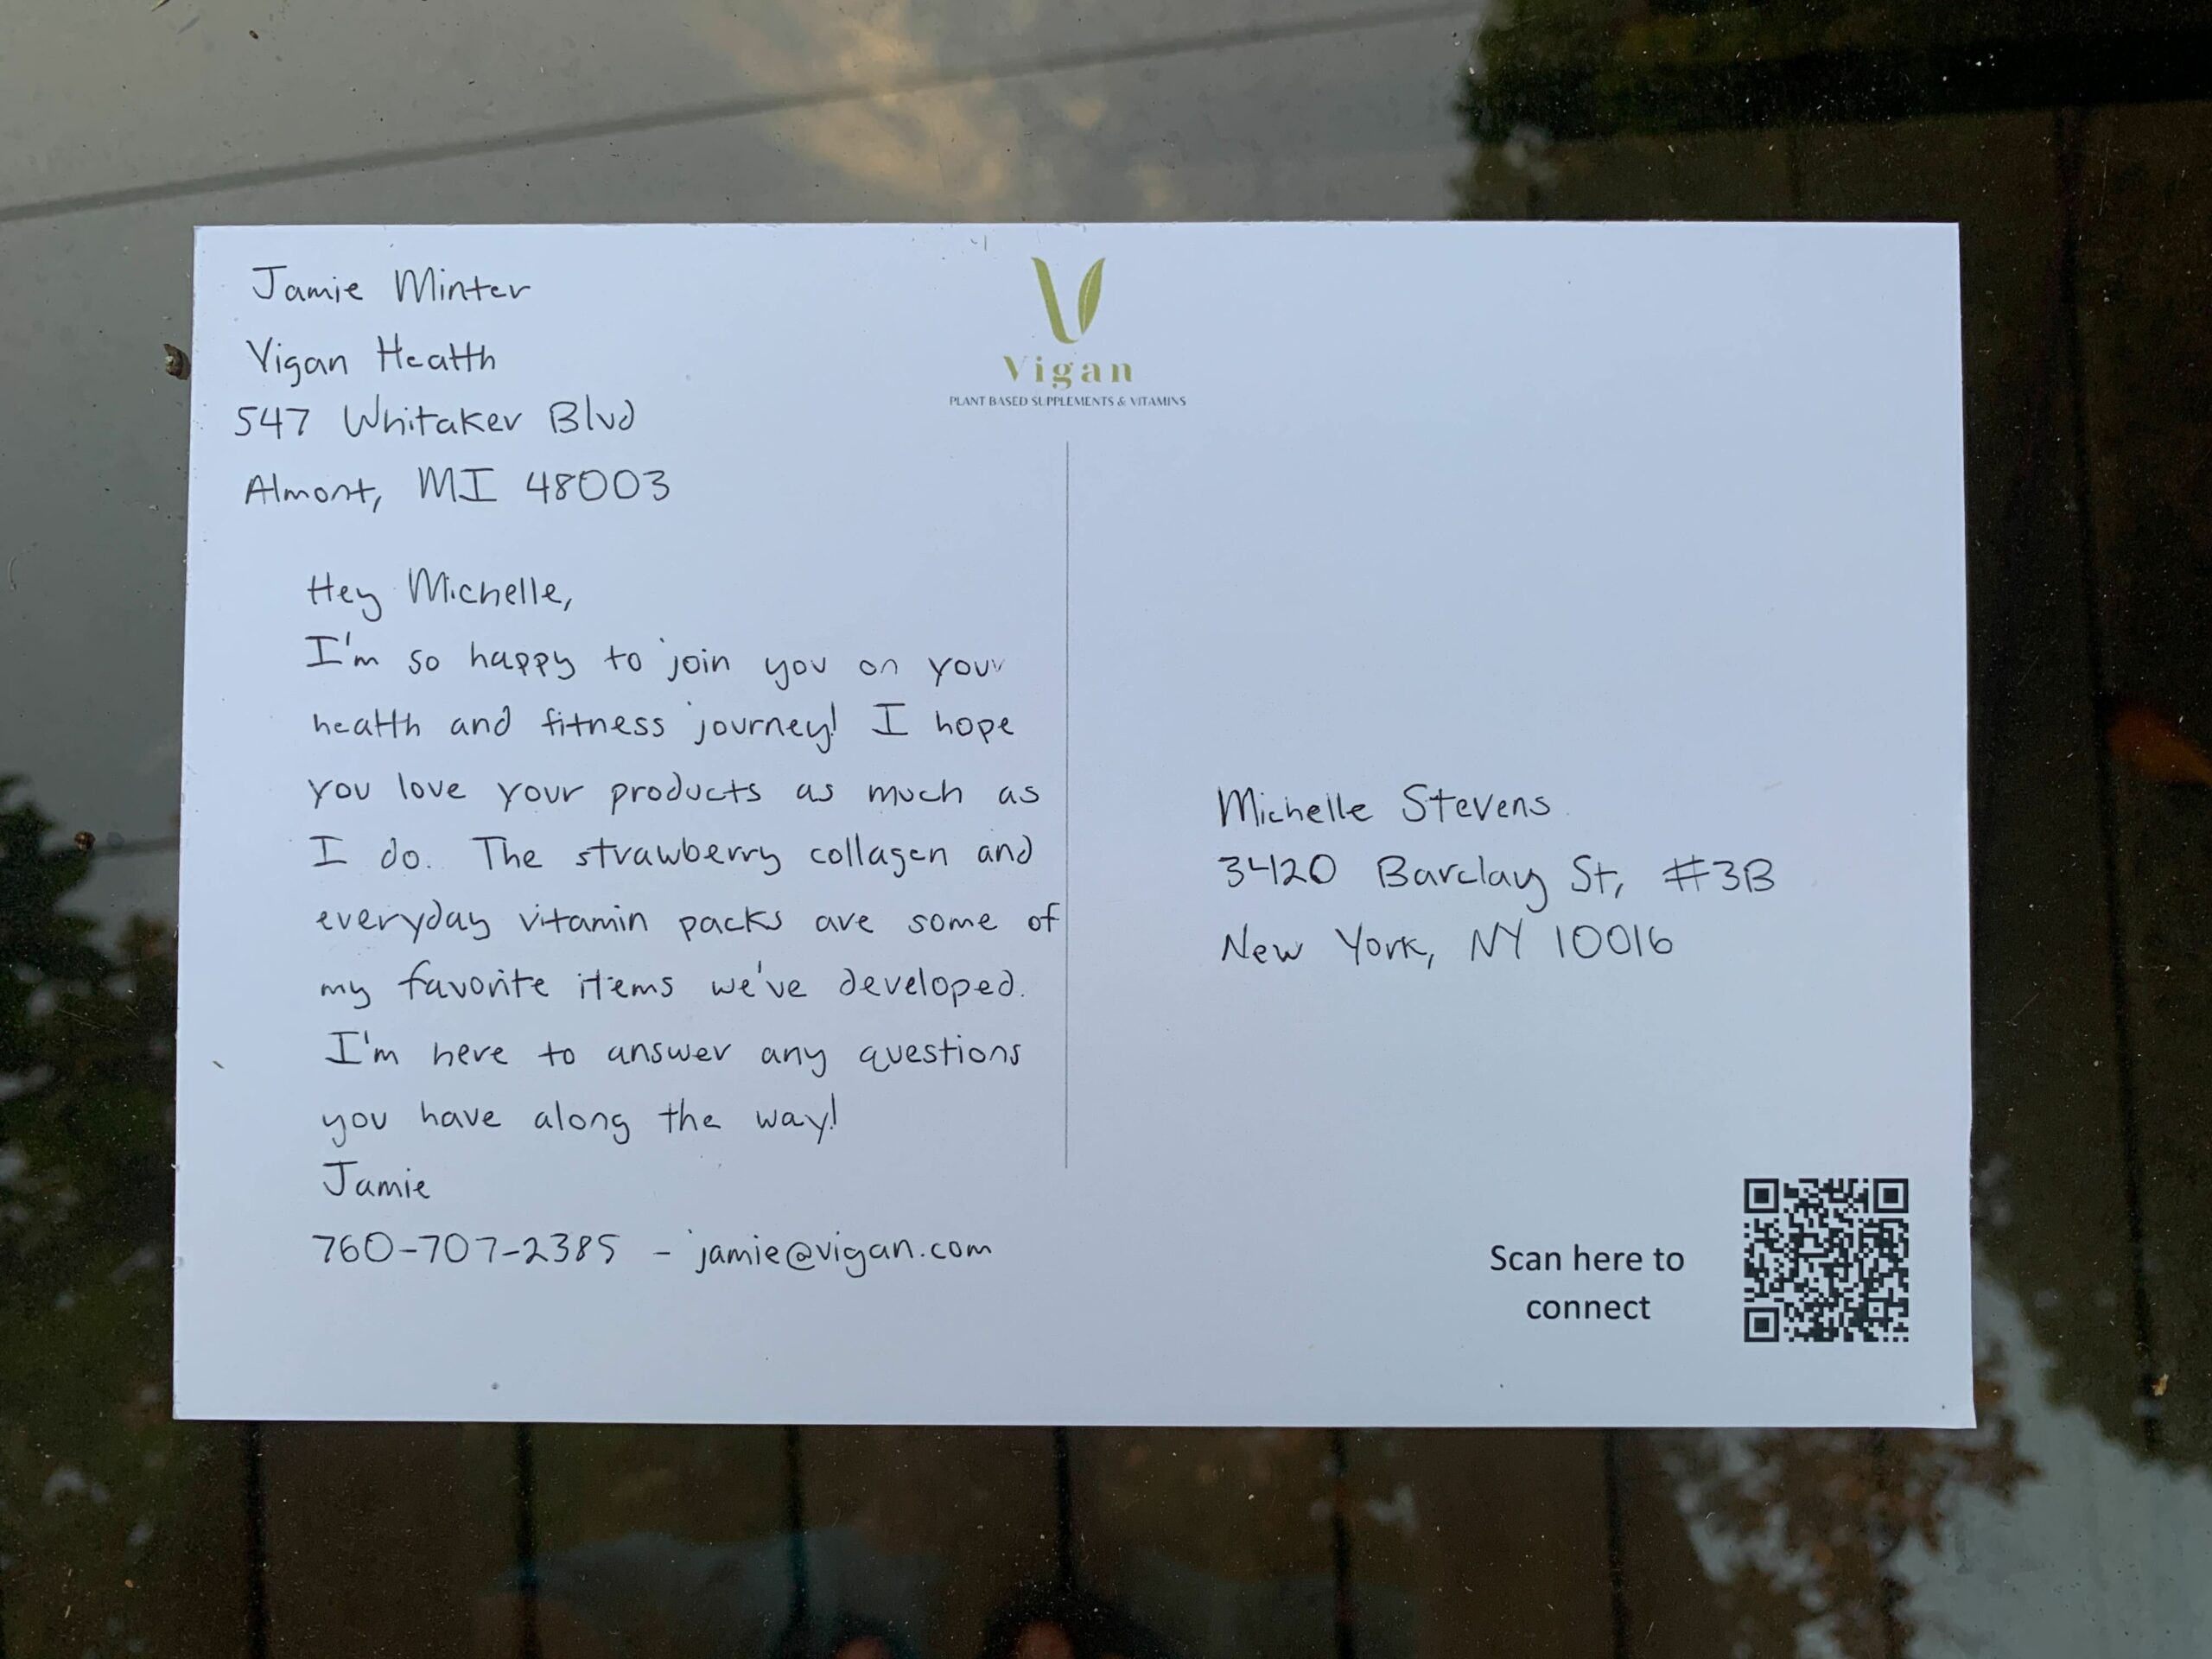 Jamie Minter
Vigan Health
547 Whitaker Blvd
Almont, MI 48003
Vigan
PLANT BASED SUPPLEMENTS & VITAMINS
Hey Michelle,
I'm so happy to join you on your
health and fitness journey! I hope
you love your products as much as
I do. The strawberry collagen and
everyday vitamin packs are some of
my favorite items we've developed.
I'm here to answer any questions
you have along the way!
Jamie
760-707-2385 - jamie@vigan.com
Michelle Stevens
3420 Barclay St, #3B
New York, NY 10016
Scan here to
connect